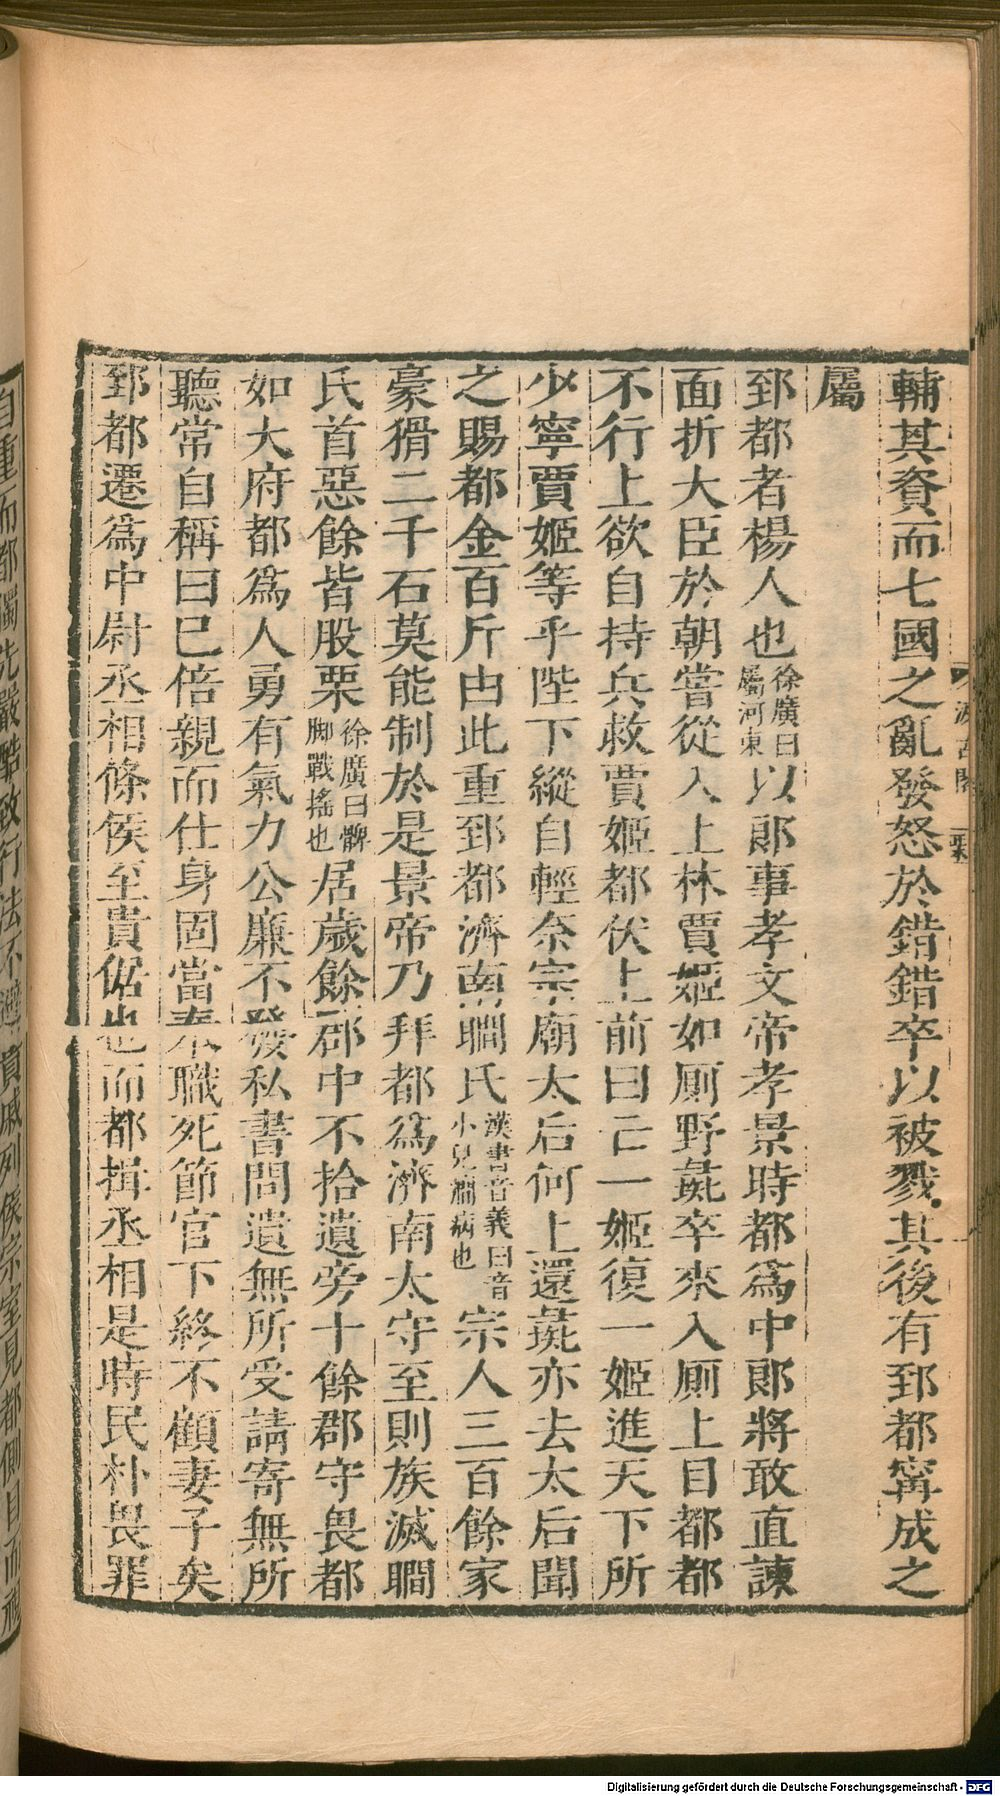 輔其資而七國之亂發怒於錯錯卒以被戮其後有郅都寗成之
屬
郅都者楊人也徐廣曰屬河東以郞事孝文帝孝景時都爲中郞將敢直諫
面折大臣於朝嘗從入上林賈姬如厠野彘卒來入厠上目都都
不行上欲自持兵救賈姬都伏上前曰亡一姬復一姬進天下所
少寧賈姬等乎陛下縱自輕柰宗廟太后何上還彘亦去太后聞
之賜都金百斤由此重郅都濟南瞯氏漢書音義曰音小兒癎病也宗人三百餘家
豪猾二千石莫能制於是景帝乃拜都爲濟南太守至則族滅瞯
氏首惡餘皆股栗徐廣曰髀脚戰搖也居歲餘郡中不拾遺旁十餘郡守畏都
如大府都爲人勇有氣力公廉不發私書問遺無所受請寄無所
聽常自稱曰已倍親而仕身固當奉職死節官下終不顧妻子矣
郅都遷爲中尉丞相條侯至貴倨也而都揖丞相是時民朴畏罪
自重而都獨先嚴酷致行法不避貴戚列侯宗室見都側目而視
汲古閣
Digitalisierung gefördert durch die Deutsche Forschungsgemeinschaft - DFG